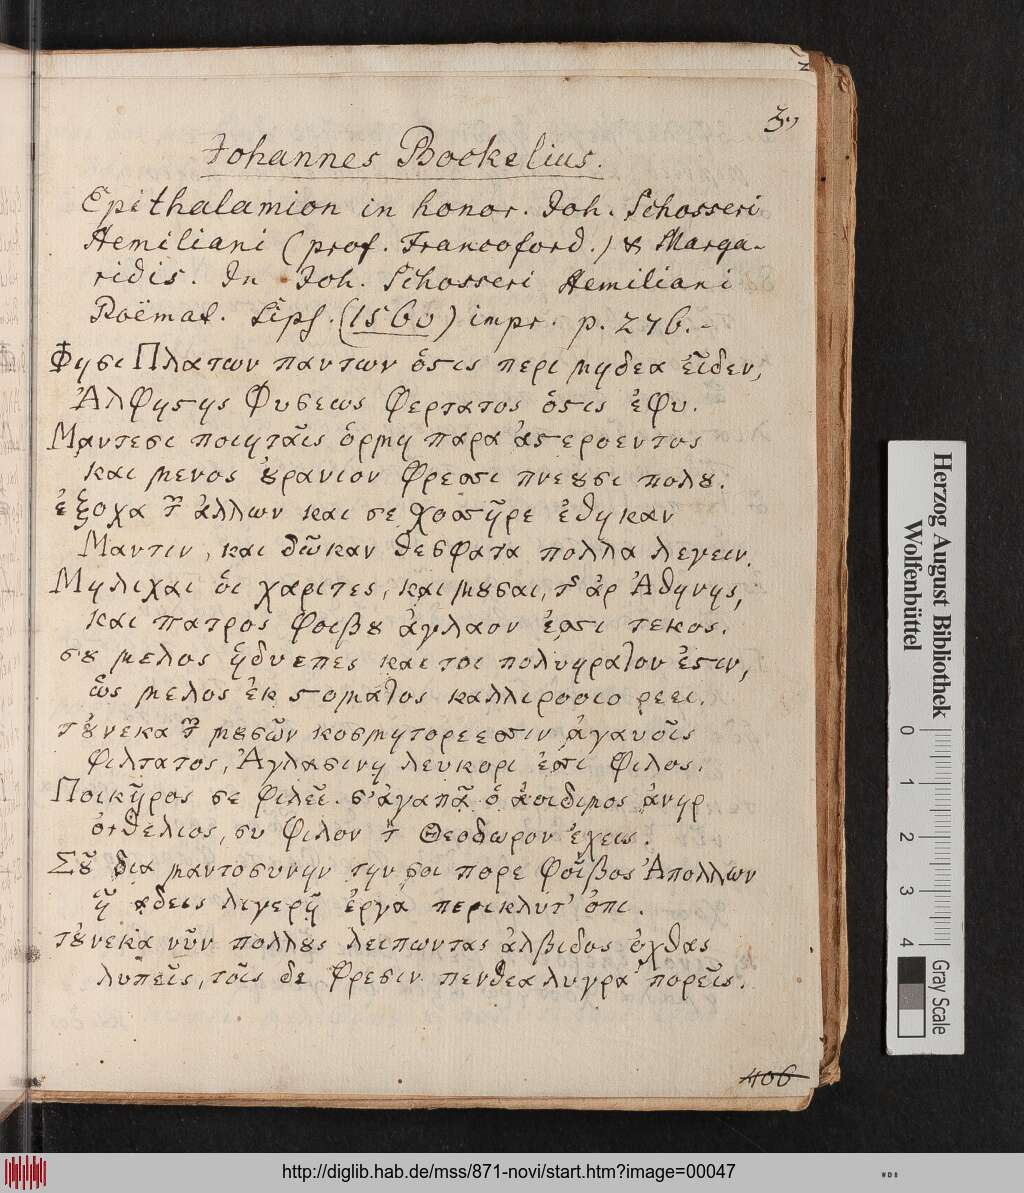 3.
Johannes Bockelius.
Epithalamion in honor. Joh. Schosseri
Aemiliani (prof. Francoford.) & Marga-
ridis. In Joh. Schosseri Aemiliani
Poëmat. Lips. (1560) impr. p. 276.-
Φησι Πλατων παντων ὁστις περι μηδεα εἶδεν,
Ἀλφηστης Φυσεως Φερτατος ὁστις ἐφυ.
Μαντεσι ποιηταῖς ὁρμη παρα ἀστεροεντος
και μενος οὐρανιον Φρεσσι πνεουσι πολυ.
ἐξοχα των ἀλλων και σε ἐθηκαν
Μαντιν, και δῶκαν θεσφατα πολλα λεγειν.
Μηλιχαι οἱ χαριτες, και μουσαι, της ἀρ Ἀθηνης,
και πατρος Φοιβου ἀγλαον ἐσσι τεκος.
σου μελος ἡδυεπες και τοι πολυηρατον ἐστιν,
ὡς μελος ἐκ στοματος καλλιροοιο ρεει.
τοὐνεκα των μουσῶν κοσμητορεεσσιν ἀγαυοῖς
Φιλτατος, Ἀγλασινη λευκορι ἐσσι Φιλος.
σε Φιλεῖ. σ' ἀγαπᾶ ὁ ἀοιδιμος ἀνηρ
συ φιλον τον Θεοδωρον ἐχεις.
Σῦ δια μαντοσυνην την σοι πορε Φοῖβος Ἀπολλων
ᾗ ᾀδεις λιγερῇ ἐργα περικλυτ' ὀπι.
τοὐνεκα νῦν πολλους λειπωντας ἀλβιδος ὀχθας
λυπεῖς, τοῖς δε Φρεσιν πενθεα λυγρα πορεῖς.
406
Herzog August Bibliothek
Wolfenbüttel
0 1 2 3 4
Gray Scale
http://diglib.hab.de/mss/871-novi/start.htm?image=00047
WDB